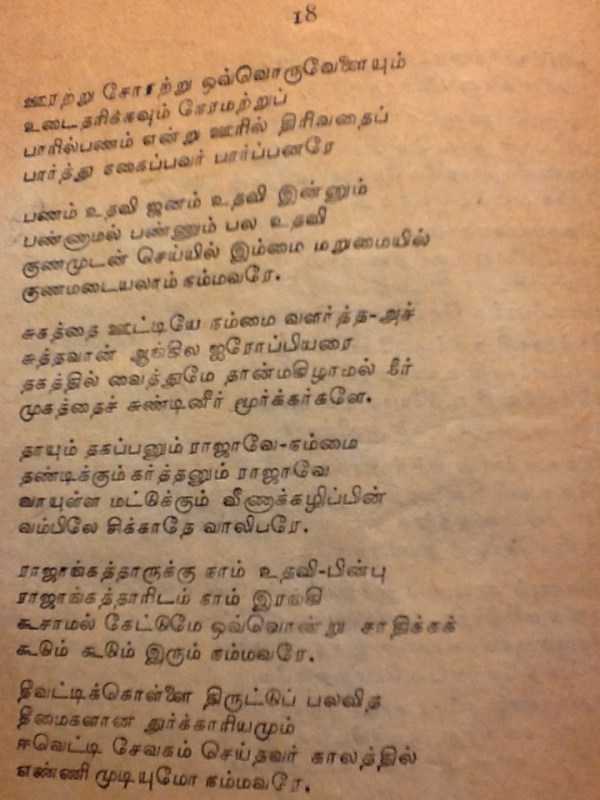 18
ஊரற்று சோரற்று ஒவ்வொருவேளையும்
உடைதரிக்கவும் நேரமற்றுப்
பாரில்பணம் என்று ஊரில் திரிவதைப்
பார்த்து நகைப்பவர் பார்ப்பனரே
பணம் உதவி ஜனம் உதவி இன்னும்
பண்ணாமல் பண்ணும் பல உதவி
குணமுடன் செய்யில் இம்மை மறுமையில்
குணமடையலாம் நம்மவரே.
சுகத்தை ஊட்டியே நம்மை வளர்த்த-அச்
சுத்தவான் ஆங்கில ஐரோப்பியரை
தகத்தில் வைத்துமே தான்மகிழாமல் நீர்
முகத்தைச் சுண்டினீர் மூர்க்கர்களே.
தாயும் தகப்பனும் ராஜாவே-நம்மை
தண்டிக்கும் கர்த்தனும் ராஜாவே
வாயுள்ள மட்டுக்கும் வீணாக்கழிப்பின்
வம்பிலே சிக்காதே வாலிபரே.
ராஜாங்கத்தாருக்கு நாம் உதவி-பின்பு
ராஜாங்கத்தாரிடம் நாம் இரங்கி
கூசாமல் கேட்டுமே ஒவ்வொன்று சாதிக்கக்
கூடும் கூடும் இரும் நம்மவரே.
தீவட்டிக்கொள்ளை திருட்டுப் பலவித
தீமைகளான துர்க்காரியமும்
ஈவெட்டி சேவகம் செய்தவர் காலத்தில்
எண்ணி முடியுமோ நம்மவரே.